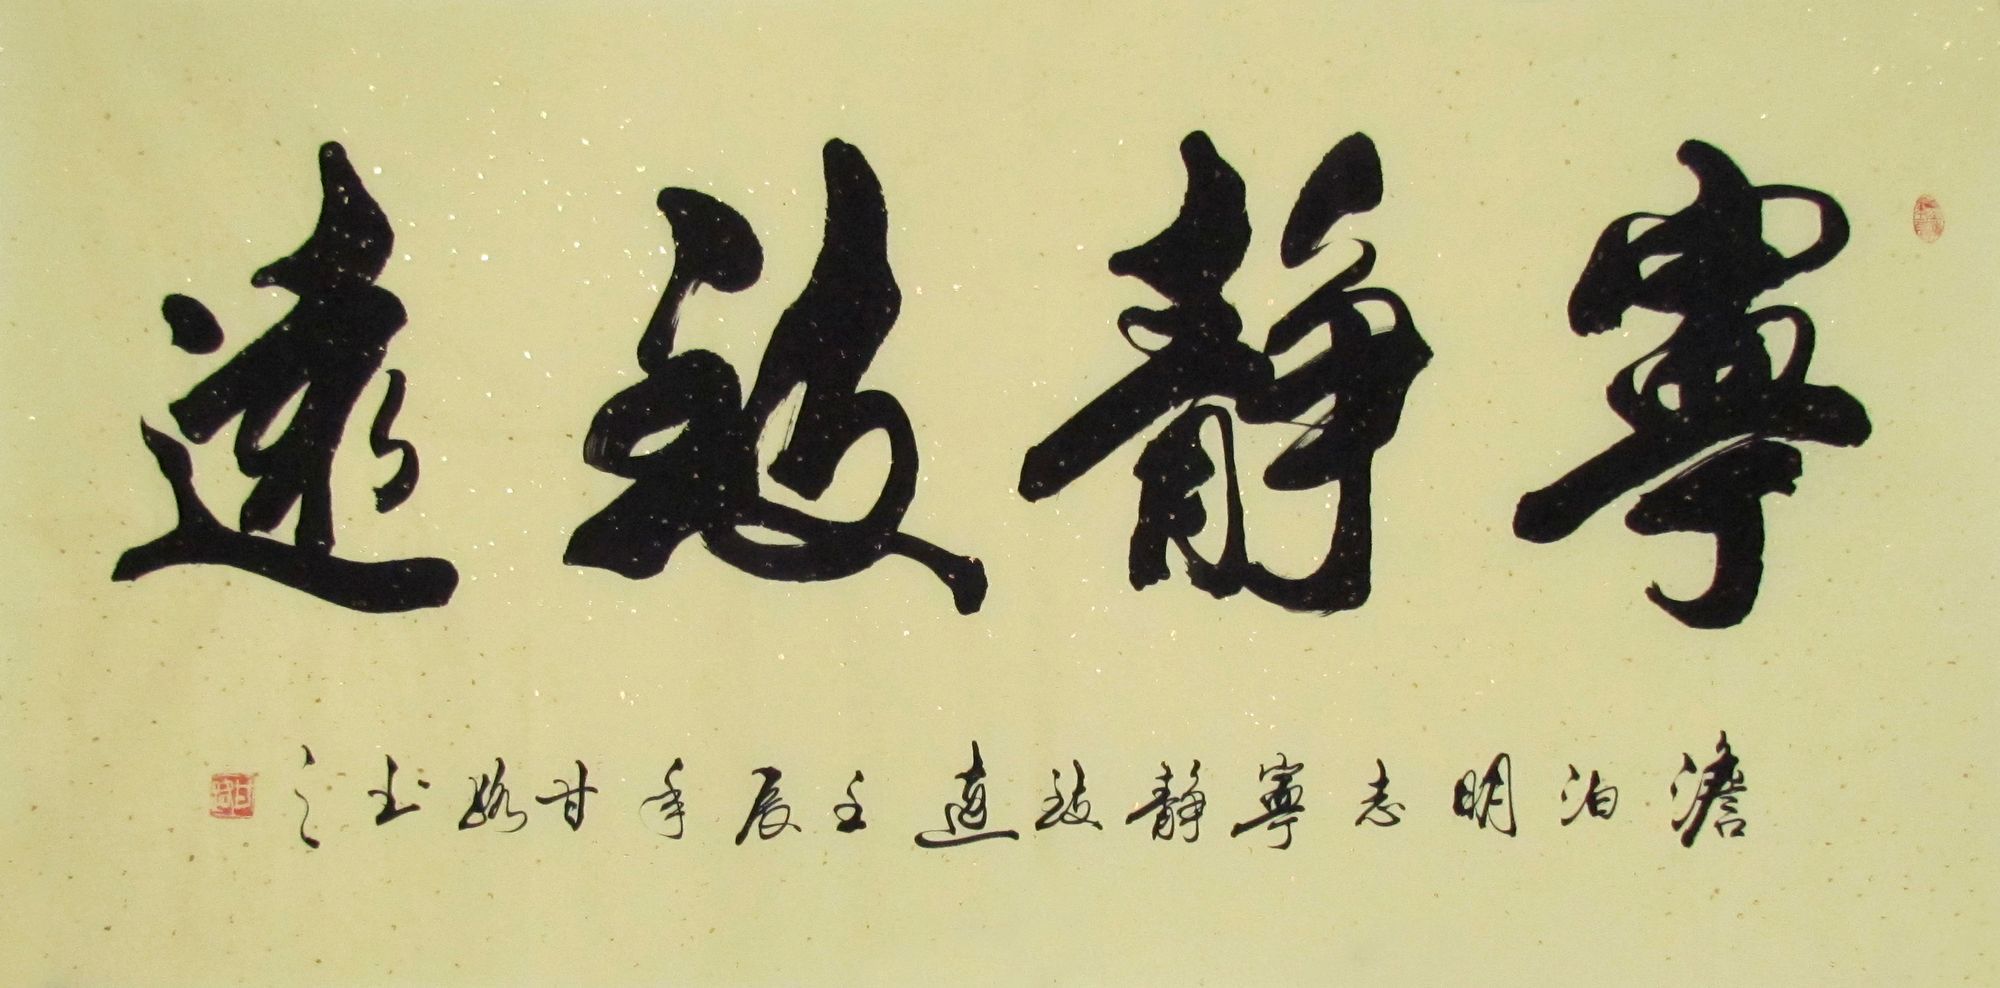 寧靜致遠
澹泊明志寧靜致遠壬辰年甘露書之